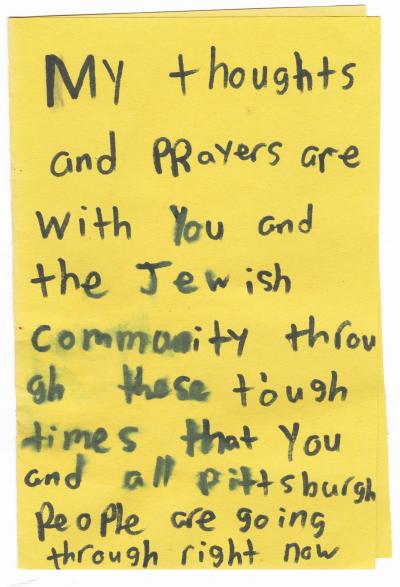 My thoughts
and PRayers are
with You and
the Jewish
community throu
gh these tough
times that You
and all pittsburgh
People are going
through right now